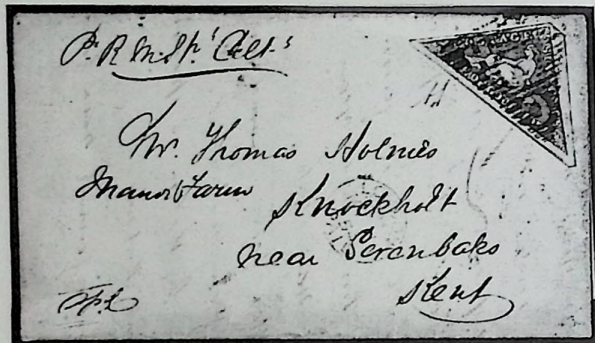 Pr. R. M. St. 'Celt'
Mr. Thomas Holmes
Manor Farm Knockholt
near Sevenoaks
Kent